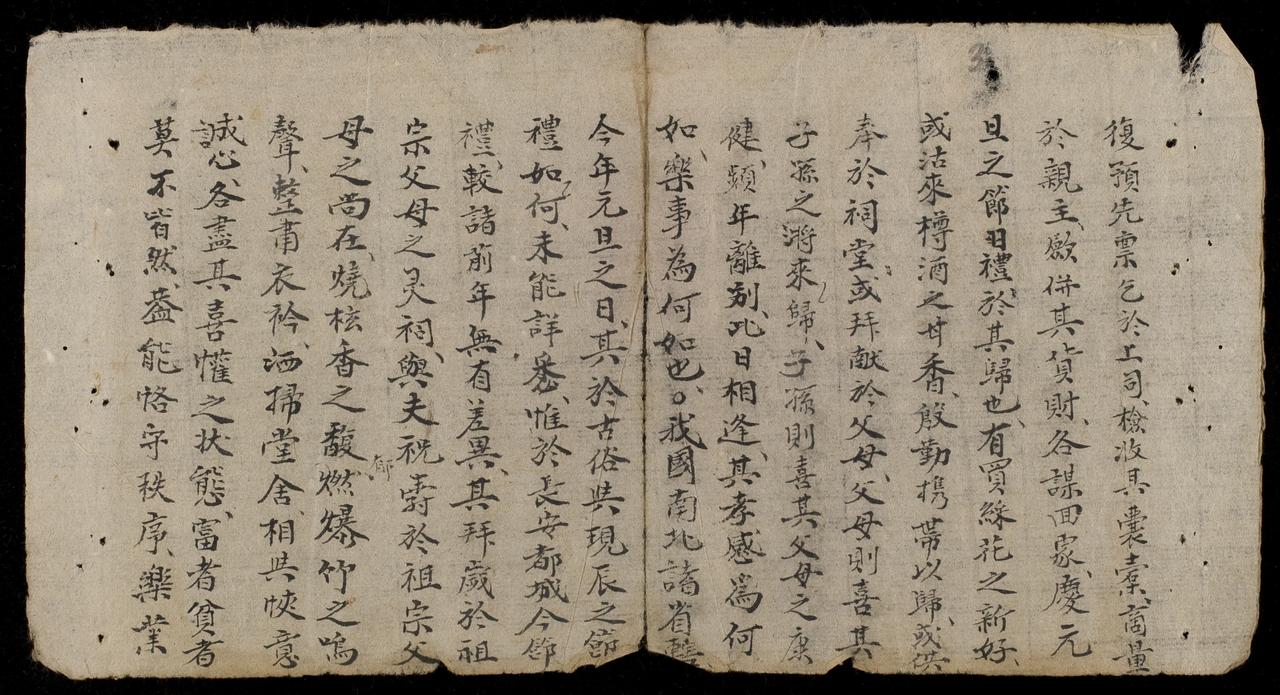 復預先票乞於上司、檢收具囊橐、商量
於親主、歛併其貨財、各謀回家、慶元
旦之節日禮、於其歸也、有買綵花之新好、
或沽來樽酒之甘香、殷勤携帶以歸、或供
奉於祠堂、或拜献於父母、父母則喜其
子孫之將來歸、子孫則喜其父母之康
健、頻年離别、此日相逢、其孝感為何
如、樂事為何如也。我國南北諸省
今年元旦之日、其於古俗與現辰之節
禮如何、未能詳悉、惟於長安都城今節
禮、較諸前年無有差異、其拜歲於祖
宗父母之灵祠、與夫祝壽於祖宗父
母之尚在、燒核香之馥郁、燃爆竹之鳴
聲、整肅衣衿、洒掃堂舍、相與快意
誠心、各盡其喜懽之状態、富者貧者
莫不皆然、葢能恪守秩序、樂業